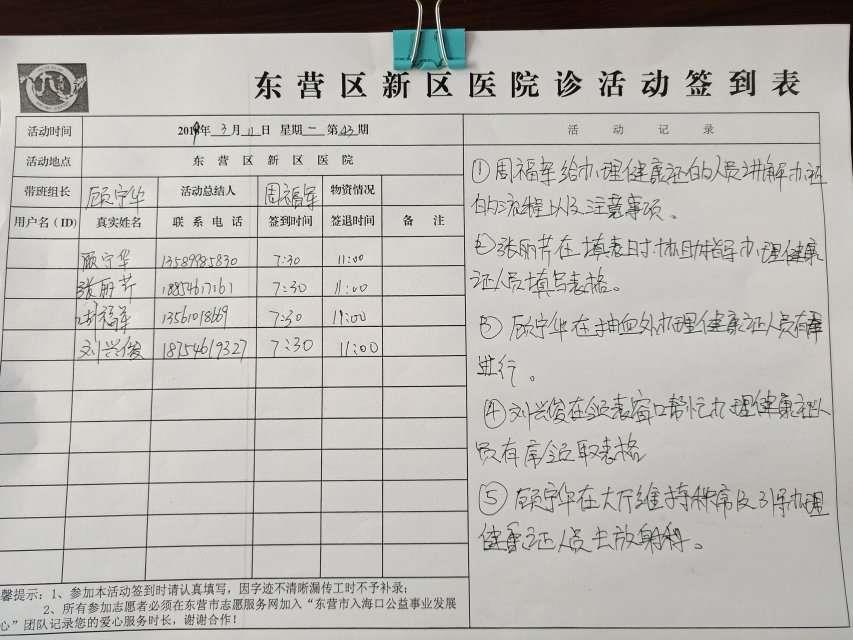 东营区新区医院诊活动签到表
活动时间 2019年3月11日 星期一 第43期 活动记录
活动地点 东营区新区医院
带班组长 顾宁华 活动总结人 周福军 物资情况
用户名(ID) 真实姓名 联系电话 签到时间 签退时间 备注
顾宁华 13589985830 7:30 11:00
张丽芹 18854617161 7:30 11:00
周福军 13561018669 7:30 11:00
刘兴俊 18754619327 7:30 11:00
①周福军给办理健康证的人员讲解办证
的流程以及注意事项。
②张丽芹在填表时协助指导办理健康
证人员填写表格。
③顾宁华在抽血处办理健康证人员有序
进行。
④刘兴俊在领表窗口帮忙办理健康证人
员有序领取表格
⑤顾宁华在大厅维持秩序及引导办理
健康证人员去放射科。
馨提示：1、参加本活动签到时请认真填写，因字迹不清晰漏传工时不予补录；
2、所有参加志愿者必须在东营市志愿服务网加入“东营市入海口公益事业发展
心”团队记录您的爱心服务时长，谢谢合作！